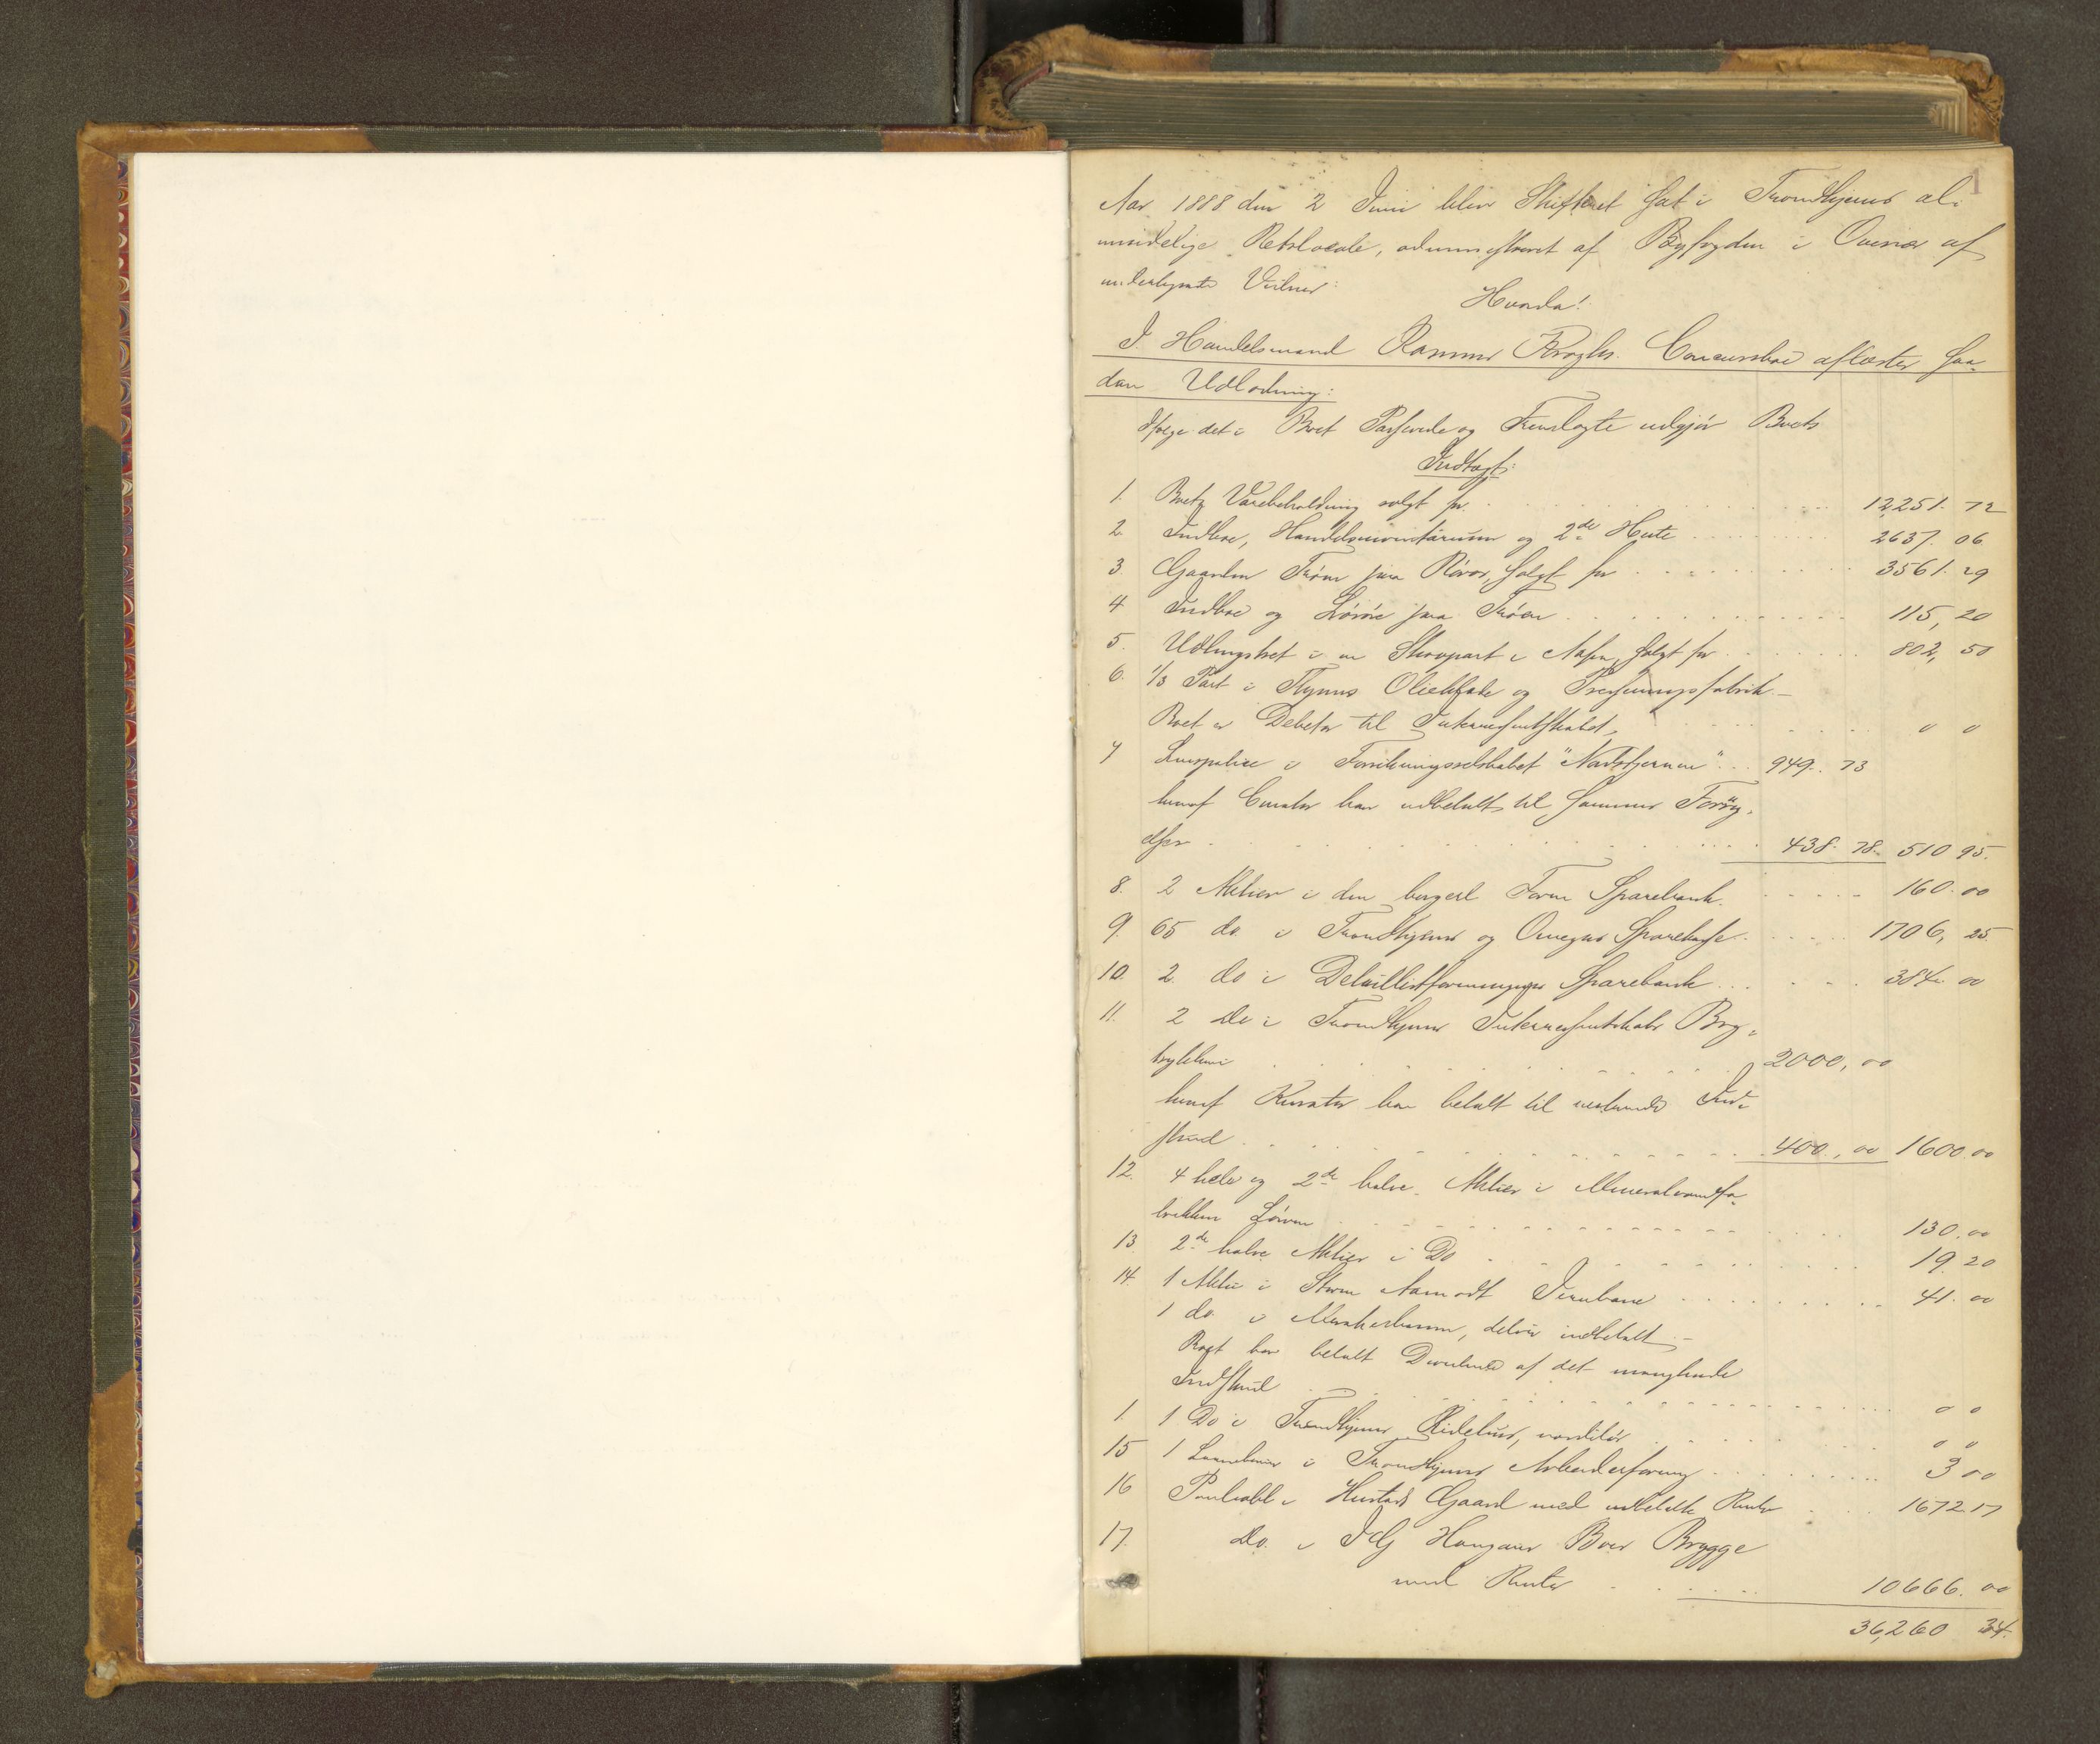 1
Aar 1888 den 2 Juni blev Skifteret sat i Trondhjems al-
mindelige Retslocale, administreret af Byfogden i Overvær af
undertegnede Vidner:
Hvorda!
I Handelsmand Rasmus Kroghs Concursbo aflæstes saa-
dan Udlodning:
Ifølge det i Boet Passerede og Fremlagte udgjør Boets
Indtægt:
1. Boets Varebeholdning solgt for 12251. 72
2. Indboe, Handelsinventarium og 2de Heste 2637. 06
3 Gaarden Trøen paa Røros, solgt for 3561. 29
4 Indboe og Løsøre paa Trøen 115, 20
5. i en Skovpart i solgt for 802, 50
6. 1/3 Part i Thjems Oliekl og fabrik -
Boet er Debitor til Interessentskabet, 0 0
7 Livspolice i Forsikringsselskabet "Nordstjernen" 949. 73
hvoraf Curator har udbetalt til sammes Forøg-
else 438. 78. 510 95.
8. 2 Aktier i den borgerl Foren Sparebank 160. 00
9. 65 do. i Trondhjems og Omegns Sparekasse 1706, 25
10. 2. do i Detaillistforeningens Sparebank 384. 00
11. 2 Do i Trondhjems Interessentskabs Bog-
trykkeri 2000, 00
hvoraf Kurator har betalt til resterende Ind-
skud 400, 00 1600. 00
12. 4 hele og 2de halve Aktier i Mineralvandfa-
brikken Løven 130. 00
13. 2de halve Aktier i Do 19. 20
14. 1 Aktie i Støren Aamodt Jernbane 41. 00
1 do. i Merakerbanen, delvis indbetalt -
Boet har betalt af det manglende
Indskud 0 0
1. 1 Do i Trondhjems Ridehus, værdiløs 0 0
15 1 Laanebevis i Trondhjems Arbeiderforening 3 00
16 Panteobl i Hustads Gaard med udbetalte Renter 1672 17
17. Do. i Boes Brygge
med Renter 10666. 00
36,260 34.